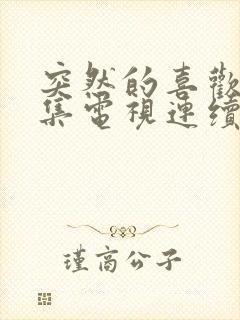 突然的喜歡
集電視連續
瑾高公子